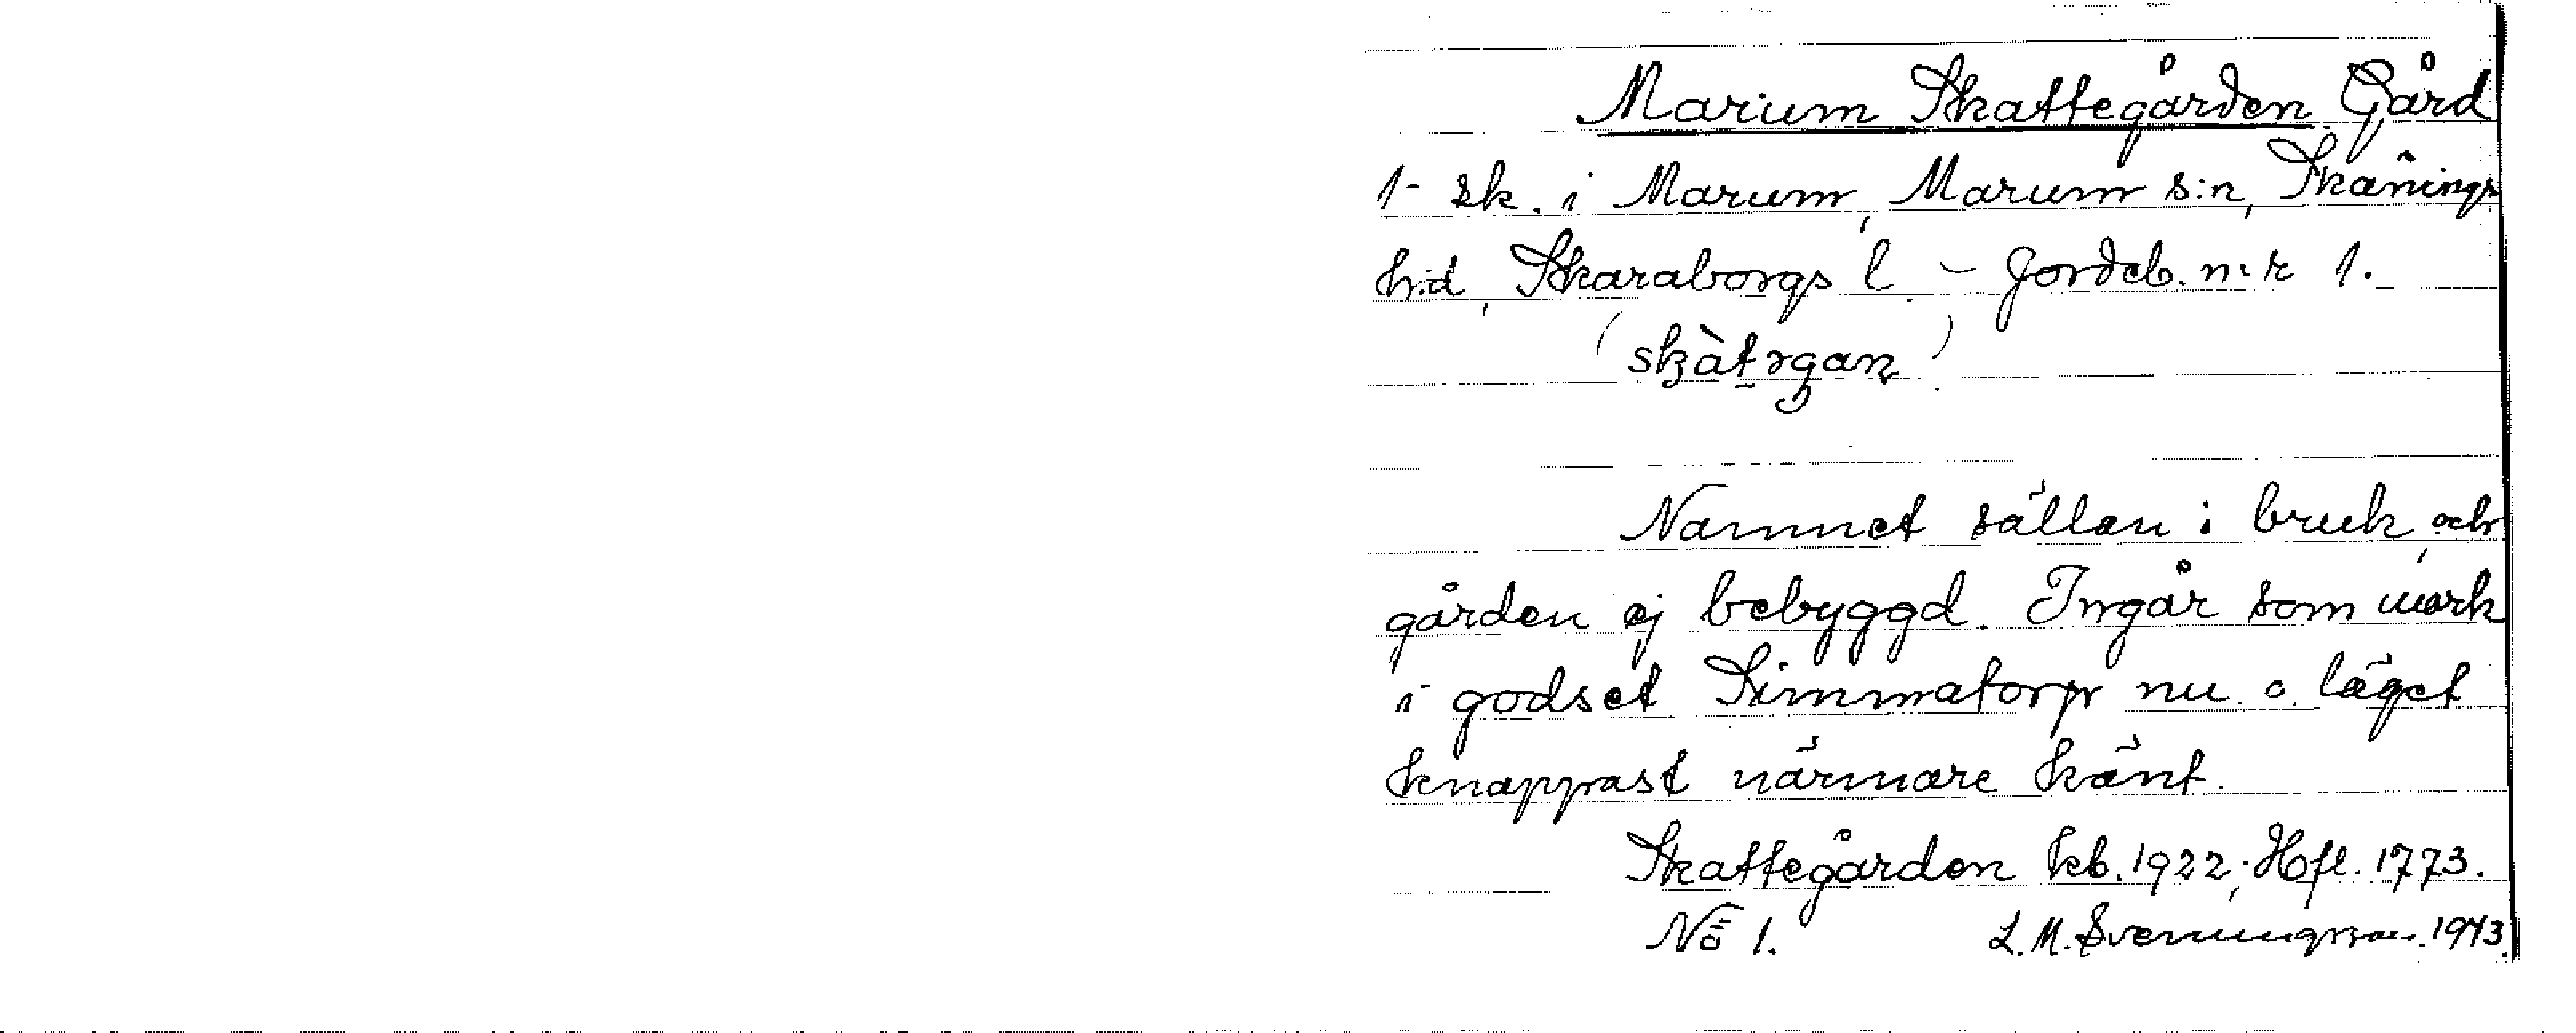 Marum Skattegården Gård
1 sk. i Marum, Marum s:n, Skånings
h:d, Skaraborgs l. – Jordeb. n:r 1.
(skàtrgan)
Namnet sällan i bruk, och
gården ej bebyggd. Ingår som mark
i godset Simmatorp nu o. läget
knappast närmare känt.
Skattegården kb. 1922; Hfl. 1773.
No 1. L. M. Svenungsson. 1943.